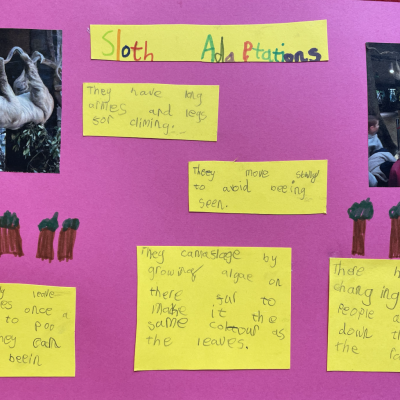 Sloth Adaptations
They have long
armes and legs
for climing.
They move slowly
to avoid beeing
seen.
They camaflage by
growing algae on
there fur to
make it the
same colour as
the leaves.
leave
es once a
to poo
hey can
beein
There h
changing
People a
down th
the